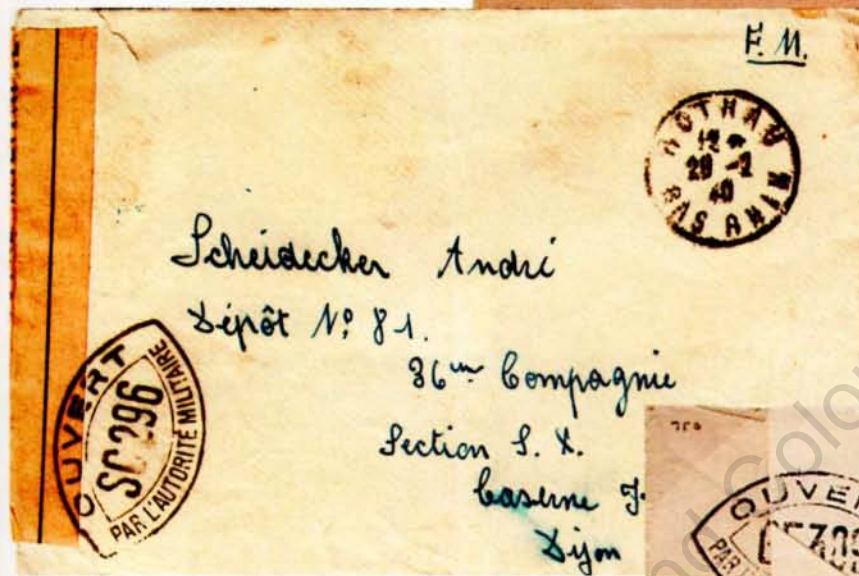 F. M.
ROTHAU
12
29 -2
40
BAS RHIN
Scheidecker André
Dépôt N° 81.
36me Compagnie
Section S. X.
Caserne J.
Dijon
OUVERT
SC296
PAR L'AUTORITÉ MILITAIRE
OUVER
PAR
and Colo